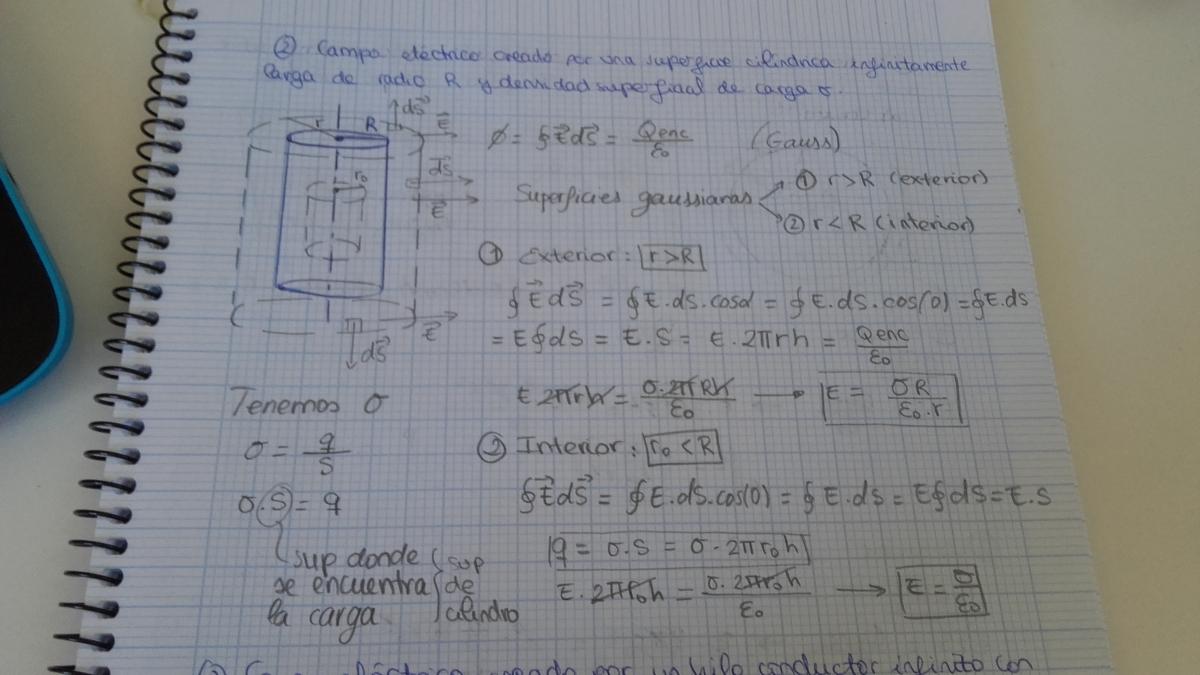 ② Campo eléctrico creado por una superficie cilíndrica infinitamente
larga de radio R y densidad superficial de carga σ.
r R dS⃗ E⃗
r₀ dS⃗
E⃗
E⃗
dS⃗
ϕ = ∮E⃗dS⃗ = Qenc/ε₀ (Gauss)
Superficies gaussianas ① r>R (exterior)
② r<R (interior)
① Exterior: r>R
∮E⃗dS⃗ = ∮E.ds.cosα = ∮E.ds.cos(0) = ∮E.ds
= E∮ds = E.S = E.2πrh = Qenc/ε₀
E 2πrh = σ.2πRh/ε₀ → E = σR/ε₀.r
Tenemos σ
σ = q/S
σ.S = q
sup donde
se encuentra
la carga
sup
de
cilindro
② Interior: r₀<R
∮E⃗dS⃗ = ∮E.ds.cos(0) = ∮E.ds = E∮ds = E.S
q = σ.S = σ.2πr₀h
E.2πr₀h = σ.2πr₀h/ε₀ → E = σ/ε₀
creado por un hilo conductor infinito con